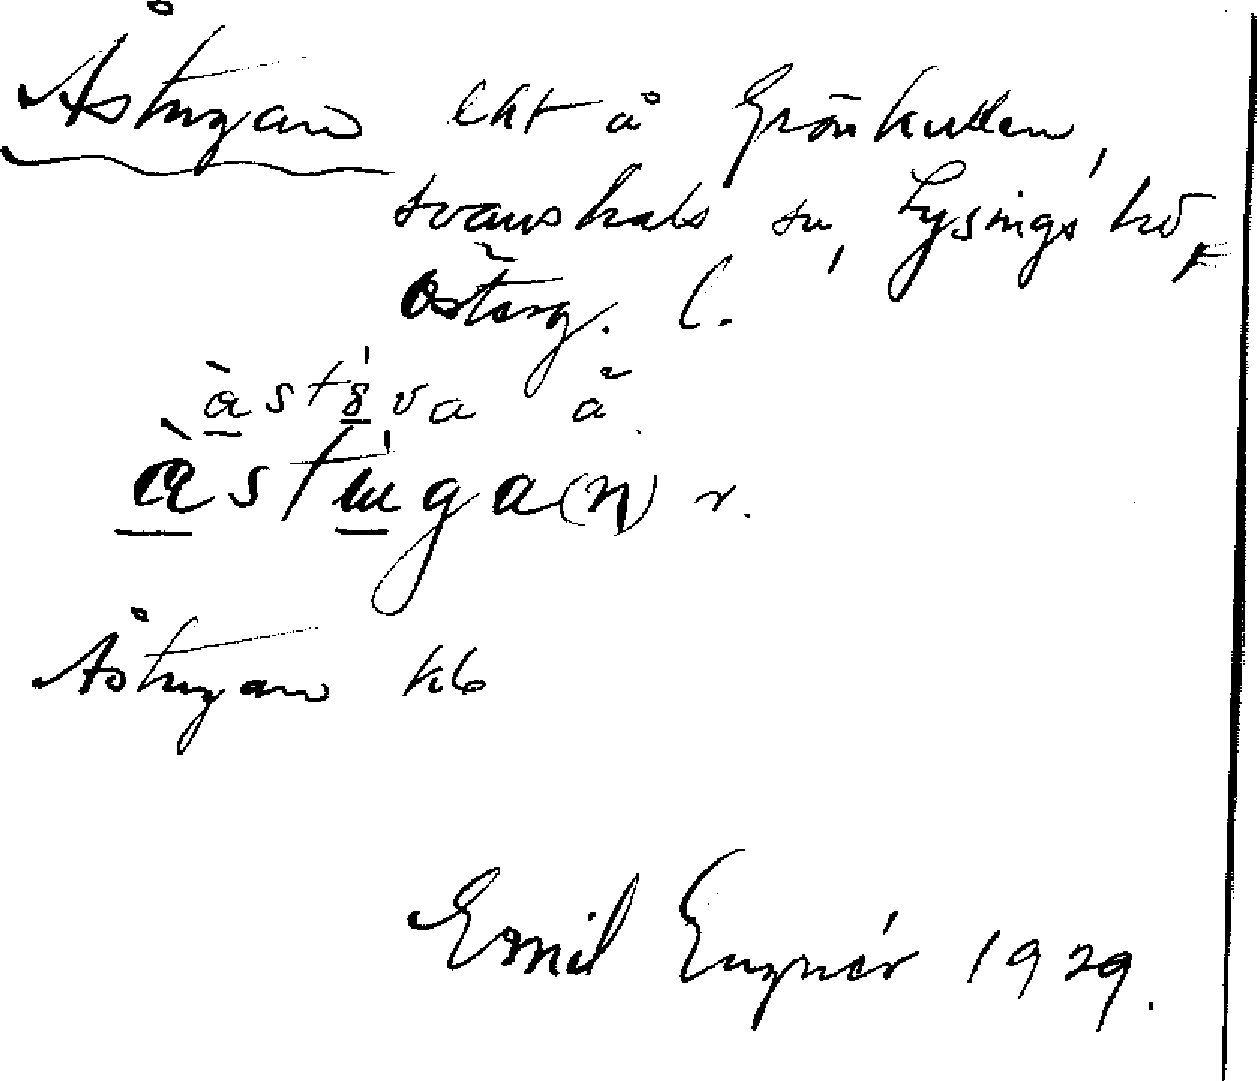 Åstugan lht å Grönkullen,
Svanshals sn, Lysings hd,
Österg. l.
åstugan
àstùga(n) r.
Åstugan kb
Emil Eugnér 1929.